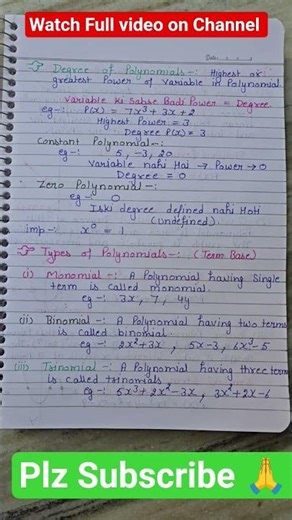 Watch Full video on Channel
Date
→ Degree of Polynomials -: Highest or
greatest Power of variable in Polynomial.
Variable ki Sabse Badi Power = Degree
eg -: P(x) = 7x³ + 3x + 2
Highest Power = 3
Degree P(x) = 3
Constant Polynomial -:
eg -: 5, -3, 20
Variable nahi Hai → Power → 0
Degree = 0
Zero Polynomial -:
eg -: 0
Iski degree defined nahi HoH
(undefined)
imp -: x⁰ = 1
→ Types of Polynomials -: (Term Base)
(i) Monomial -: A Polynomial having Single
term is called monomial.
eg -: 3x, 7, 4y
(ii) Binomial -: A Polynomial having two terms
is called binomial.
eg -: 2x²+3x, 5x-3, 6x³-5
(iii) Trinomial -: A Polynomial having three terms
is called trinomials
eg -: 5x³+2x²-3x, 3x²+2x-6
Plz Subscribe 🙏